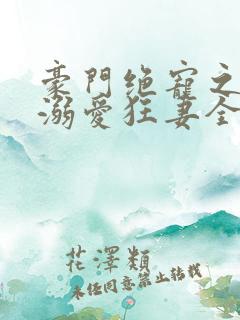 豪門絕寵之
溺愛狂妻全
花澤類
未經同意禁止轉載